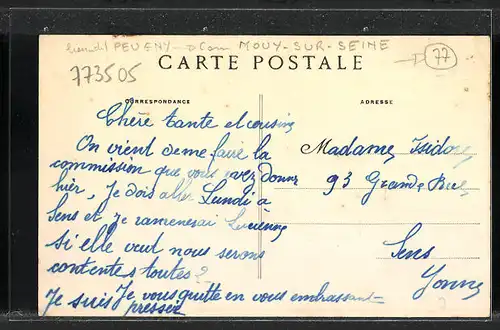 PEUENY - D Com MOUY-SUR-SEINE
77
773505
CARTE POSTALE
CORRESPONDANCE
ADRESSE
Chère tante et cousine
On vient de me faire la
commission que vous avez donné
hier, Je dois aller Lundi à
Sens et je ramenerai Lucienne
si elle veut nous serons
contentes toutes?
Je vous quitte en vous embrassant
Je suis pressée
Madame Isidore
93 Grande Rue
Sens
Yonne